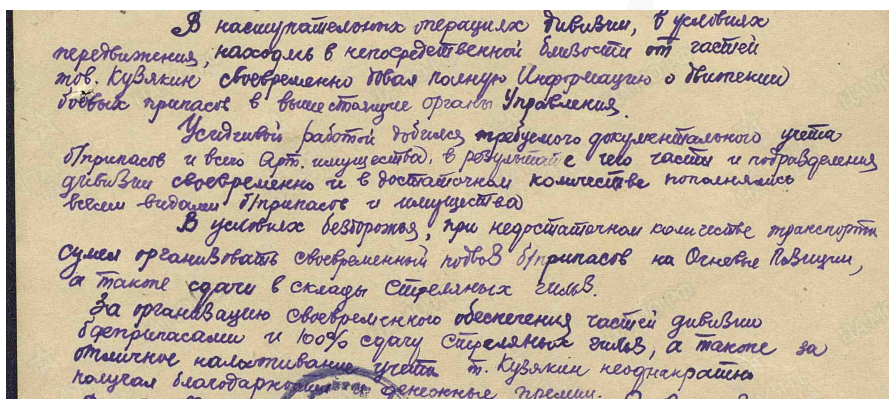 В наступательных операциях дивизии, в условиях
передвижения, находясь в непосредственной близости от частей
тов. Кузякин своевременно давал полную Информацию о движении
боевых припасов в вышестоящие органы Управления.
Усидчивой работой добился требуемого документального учета
б/припасов и всего Арт. имущества, в результате чего части и подразделения
дивизии своевременно и в достаточном количестве пополнялись
всеми видами б/припасов и имущества
В условиях бездорожья, при недостаточном количестве транспорта
сумел организовать своевременный подвоз б/припасов на Огневые Позиции,
а также сдачи в склады стреляных гильз.
За организацию своевременного обеспечения частей дивизии
боеприпасами и 100% сдачу стреляных гильз, а также за
отличное налаживание учета т. Кузякин неоднократно
получал благодарности денежные премии.